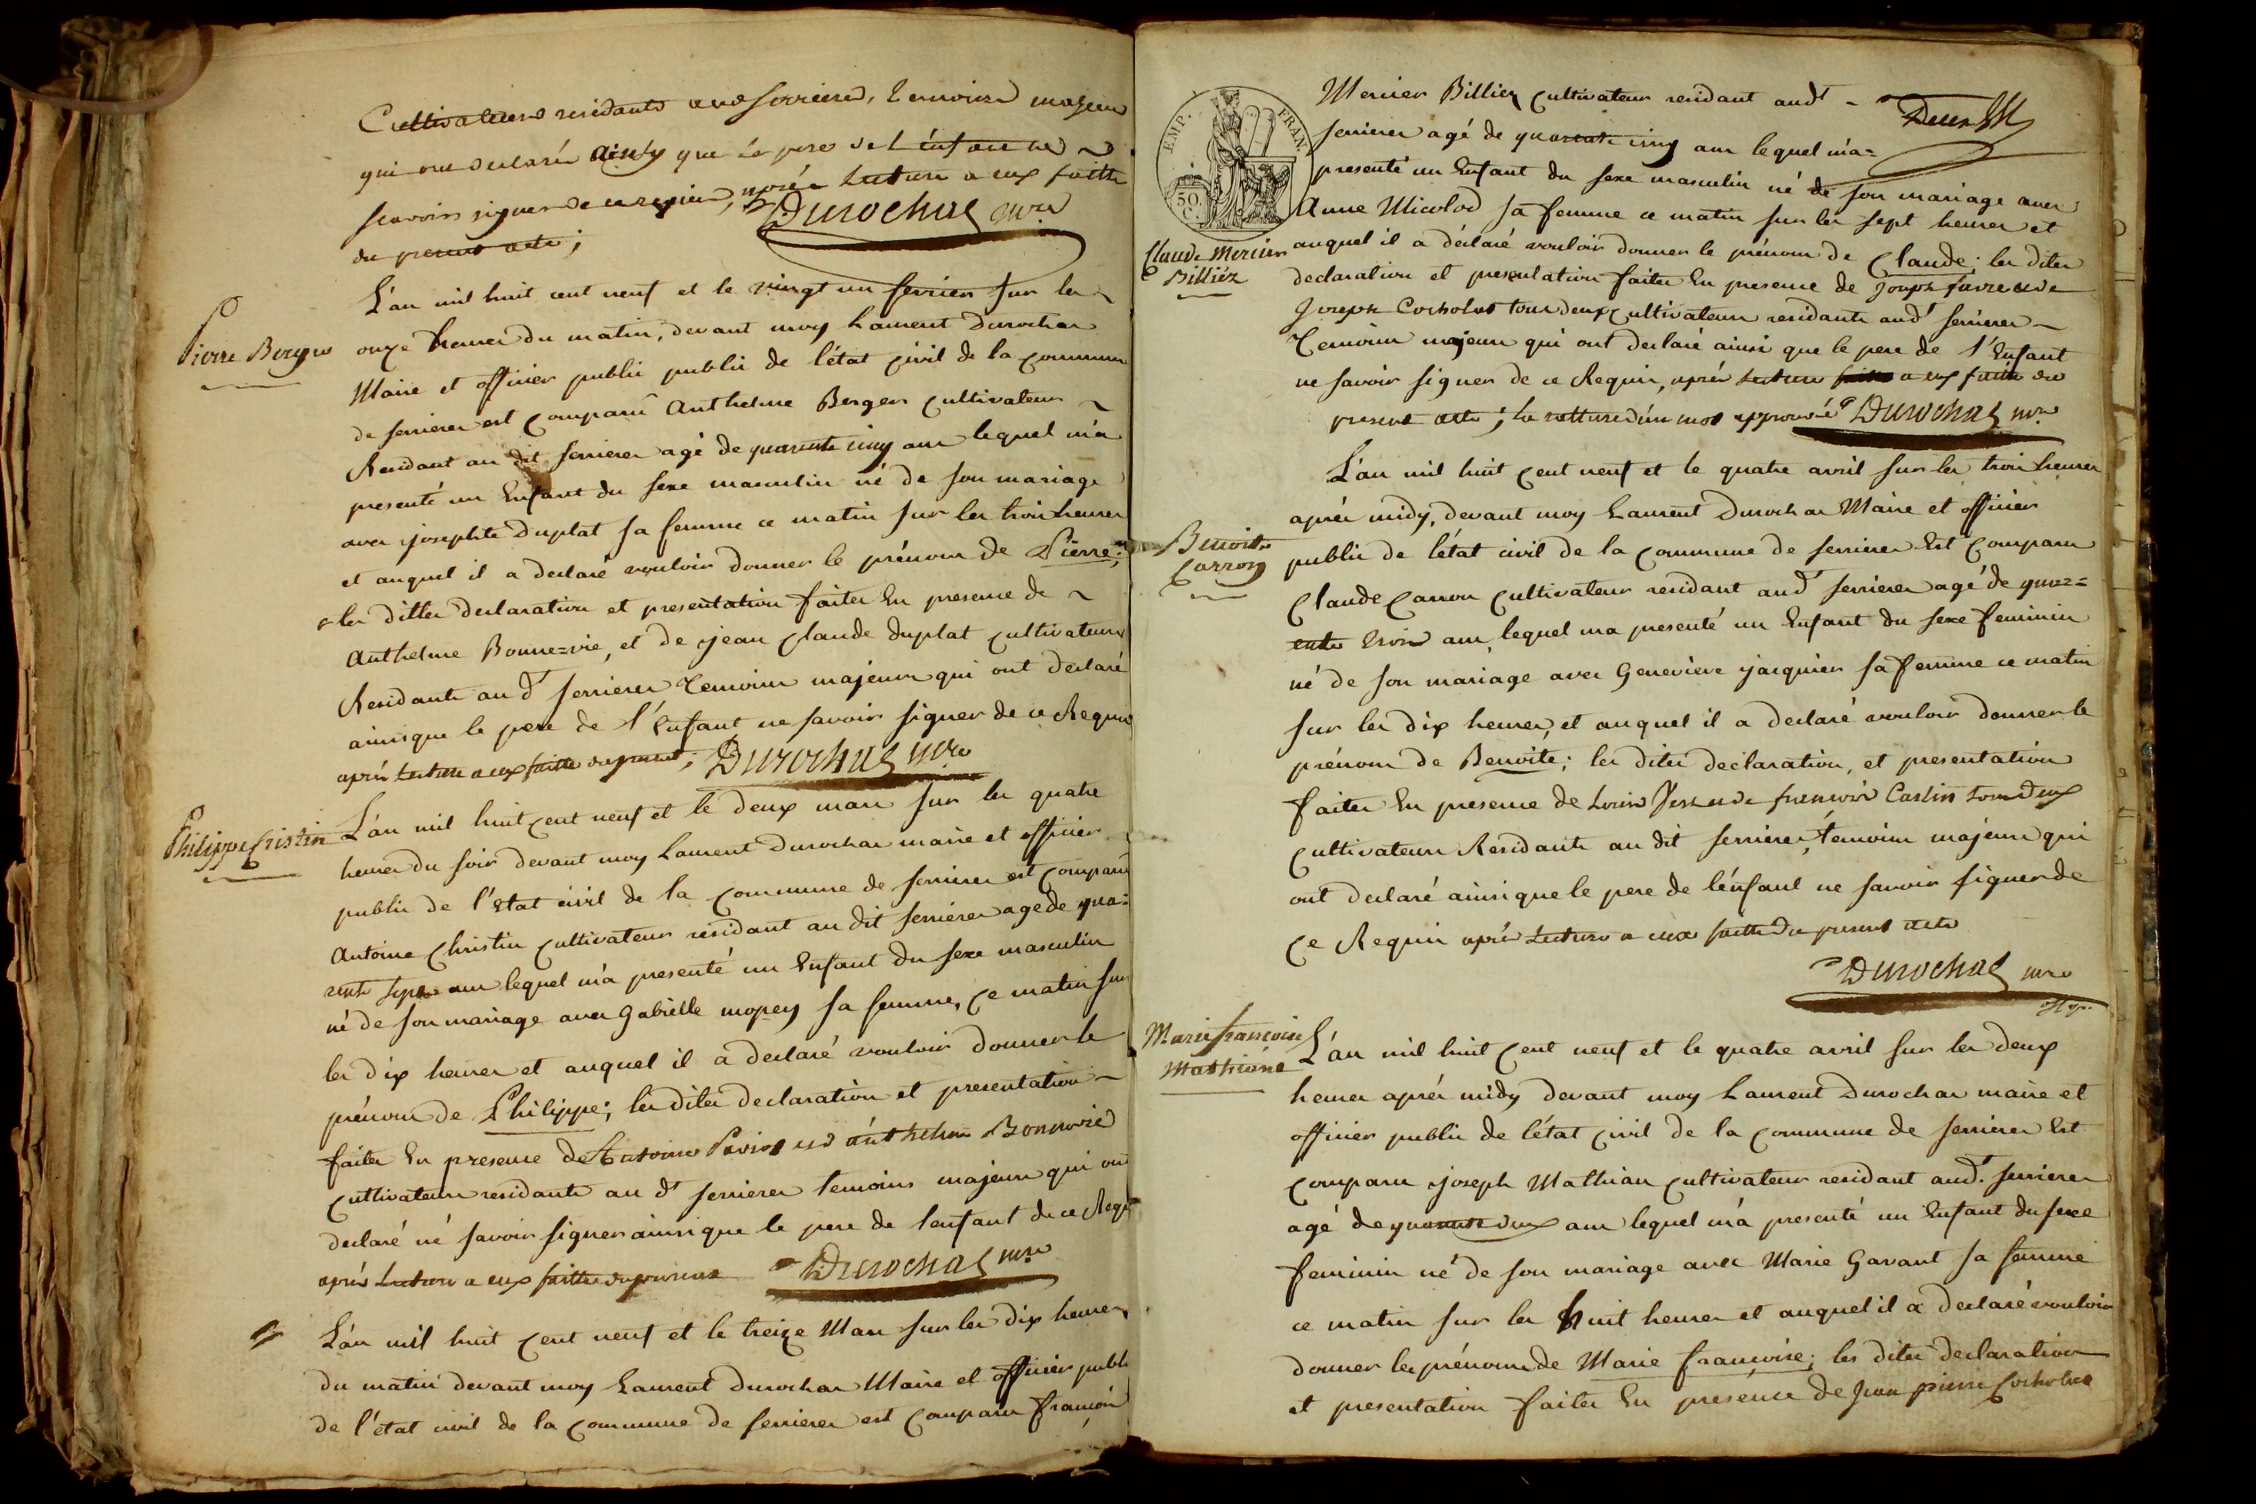 Cultivateurs residants aud serrieres, Temoins majeurs
qui ont declaré ainsy que le pere de l'enfant ne
scavoir signer de ce requis, après lecture a eux faitte
du present acte;
Durochat mre
Pierre Berger
L'an mil huit cent neuf et le vingt un fevrier sur les
onze heures du matin, devant moy Laurent Durochat
Maire et officier public public de létat civil de la commune
de serrieres est comparu Anthelme Berger cultivateur
Residant au dit serrieres agé de quarente cinq ans lequel m'a
presenté un Enfant du sexe masculin né de son mariage
avec josephte Duplat sa femme ce matin sur les trois heures
et auquel il a declaré vouloir donner le prénom de Pierre;
les dittes declaration et presentation faites En presence de
Anthelme Bonne=vie, et de jean Claude Duplat cultivateurs
Residants au dt serrieres Temoins majeurs qui ont declaré
ainsique le pere de l'Enfant ne savoir signer de ce Requis
après lecture a eux faitte du present; Durochat mre
Philippe Cristin
L'an mil huit cent neuf et le deux mars sur les quatre
heures du soir devant moy Laurent Durochat maire et officier
public de l'Etat civil de la Commune de serrieres est comparu
Antoine Christin cultivateur résidant au dit serriéres age de qua=
rente sept ans lequel m'a presenté un Enfant du sexe masculin
né de son mariage avec Gabielle mopey sa femme, ce matin sur
les dix heures et auquel il a declaré vouloir donner le
prénom de Philippe; les dites declaration et presentation
faites En presence de Antoine et anthelme Bonnevie
cultivateurs residants au dt serrieres temoins majeurs qui ont
declaré né savoir signer ainsi que le pere de lenfant de ce Requis
après Lecture a eux faitte du present Durochat mre
L'an mil huit Cent neuf et le treize Mars sur les dix heures
du matin devant moy Laurent Durochat Maire et officier public
de l'état civil de la Commune de serrieres est Comparu françois
EMP. FRAN.
50 C.
Mercier Billiez Cultivateur residant audt
serrieres agé de quarente cinq ans lequel m'a=
presenté un Enfant du sexe masculin né de son mariage avec
Anne Micolod sa femme ce matin sur les sept heures et
Claude Mercier
Billiéz
auquel il a déclaré vouloir donner le prénom de Claude; les dites
declaration et presentation faites En presence de joseph favre et de
Joseph Cocholat tous deux cultivateurs residants audt serrieres
Temoins majeurs qui ont declaré ainsi que le pere de l'Enfant
ne savoir signer de ce Requis, après lecture faitte a eux faitte du
present acte; la rature d'un mot approuvé Durochat mre
Benoite
Carron
L'an mil huit Cent neuf et le quatre avril sur les trois heures
après midy, devant moy Laurent Durochat Maire et officier
public de létat civil de la Commune de serrieres Est Comparu
Claude Carron Cultivateur residant audt serrieres agé de quar=
ente trois ans, lequel ma presenté un Enfant du sexe feminin
né de son mariage avec Geneviève jacquier sa femme ce matin
sur les dix heures, et auquel il a declaré vouloir donner le
prénom de Benoite; les dites declaration, et presentation
faites En presence de Louis et de francois Castin tous deux
cultivateurs Residants au dit serrieres, témoins majeurs qui
ont declaré ainsi que le pere de l'énfant ne savoir signer de
Ce Requis après lecture a eux faitte du present acte
Durochat mre
Marie francoise
Mathiéne
L'an mil huit Cent neuf et le quatre avril sur les deux
heures après midy devant moy Laurent Durochat maire et
officier public de létat civil de la Commune de serrieres Est
Comparu joseph Mathian cultivateur residant audt. serrieres
agé de quarente deux ans lequel m'a presenté un Enfant du sexe
feminin né de son mariage avec Marie Gavant sa femme
ce matin sur les huit heures et auquel il a declaré vouloir
donner les prénoms de Marie francoise; les dites declaration
et presentation faites En presence de Jean pierre Cocholat